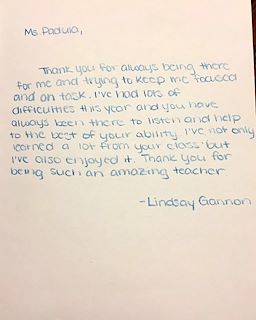 Ms. Padula,
Thank you for always being there
for me and trying to keep me focused
and on task. I've had lots of
difficulties this year and you have
always been there to listen and help
to the best of your ability. I've not only
learned a lot from your class but
I've also enjoyed it. Thank you for
being such an amazing teacher.
-Lindsay Gannon